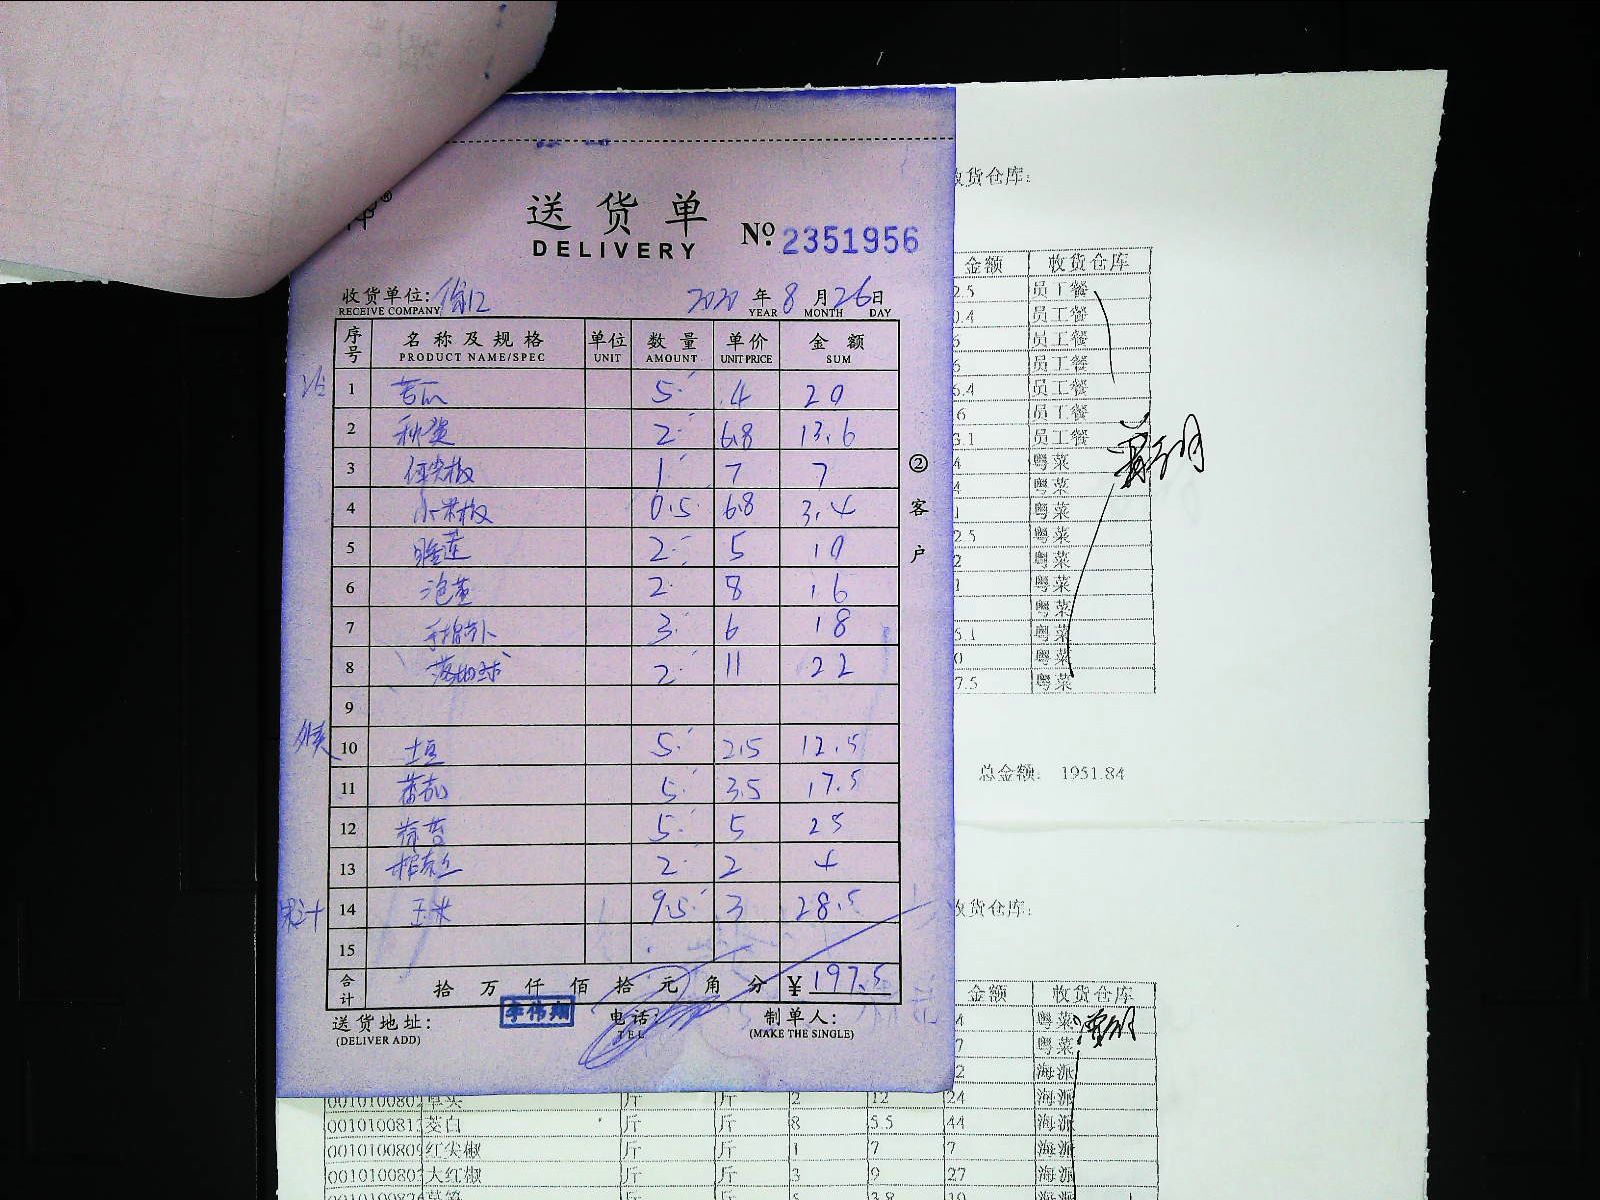 送货单
DELIVERY
No. 2351956
收货单位:
RECEIVE COMPANY
2020 年 8 月 26 日
YEAR MONTH DAY
序号 名称及规格 单位 数量 单价 金额
PRODUCT NAME/SPEC UNIT AMOUNT UNIT PRICE SUM
1 苦瓜 5 4 20
2 秋葵 2 6.8 13.6
3 红尖椒 1 7 7
4 小米椒 0.5 6.8 3.4
5 2 5 10
6 泡姜 2 8 16
7 3 6 18
8 2 11 22
9
10 土豆 5 2.5 12.5
11 番茄 5 3.5 17.5
12 5 5 25
13 榨菜丝 2 2 4
果汁 14 玉米 9.5 3 28.5
15
合计 拾 万 仟 佰 拾 元 角 分 ¥197.5
送货地址: 李伟翔 电话: 制单人:
(DELIVER ADD) TEL (MAKE THE SINGLE)
②客户
收货仓库:
金额 收货仓库
2.5 员工餐
0.4 员工餐
员工餐
员工餐
6.4 员工餐
6 员工餐
3.1 员工餐
4 粤菜
4 粤菜
1 粤菜
2.5 粤菜
2 粤菜
1 粤菜
粤菜
5.1 粤菜
0 粤菜
7.5 粤菜
总金额: 1951.84
收货仓库:
金额 收货仓库
4 粤菜
7 粤菜
2 海派
斤 斤 2 12 24 海派
茭白 斤 斤 8 5.5 44 海派
红尖椒 斤 斤 1 7 7 海派
大红椒 斤 斤 3 9 27 海派
斤 斤 5 3.8 19 海派